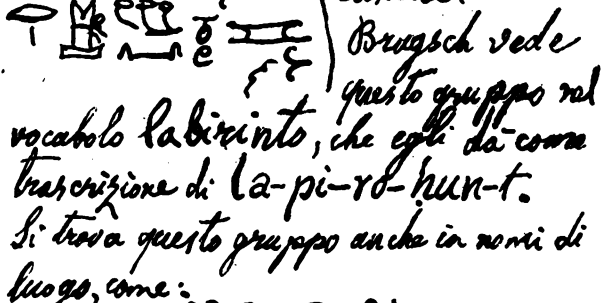 Brugsch vede
questo gruppo nel
vocabolo labirinto, che egli dà come
trascrizione di la-pi-ro-hun-t.
Si trova questo gruppo anche in nomi di
luogo, come: